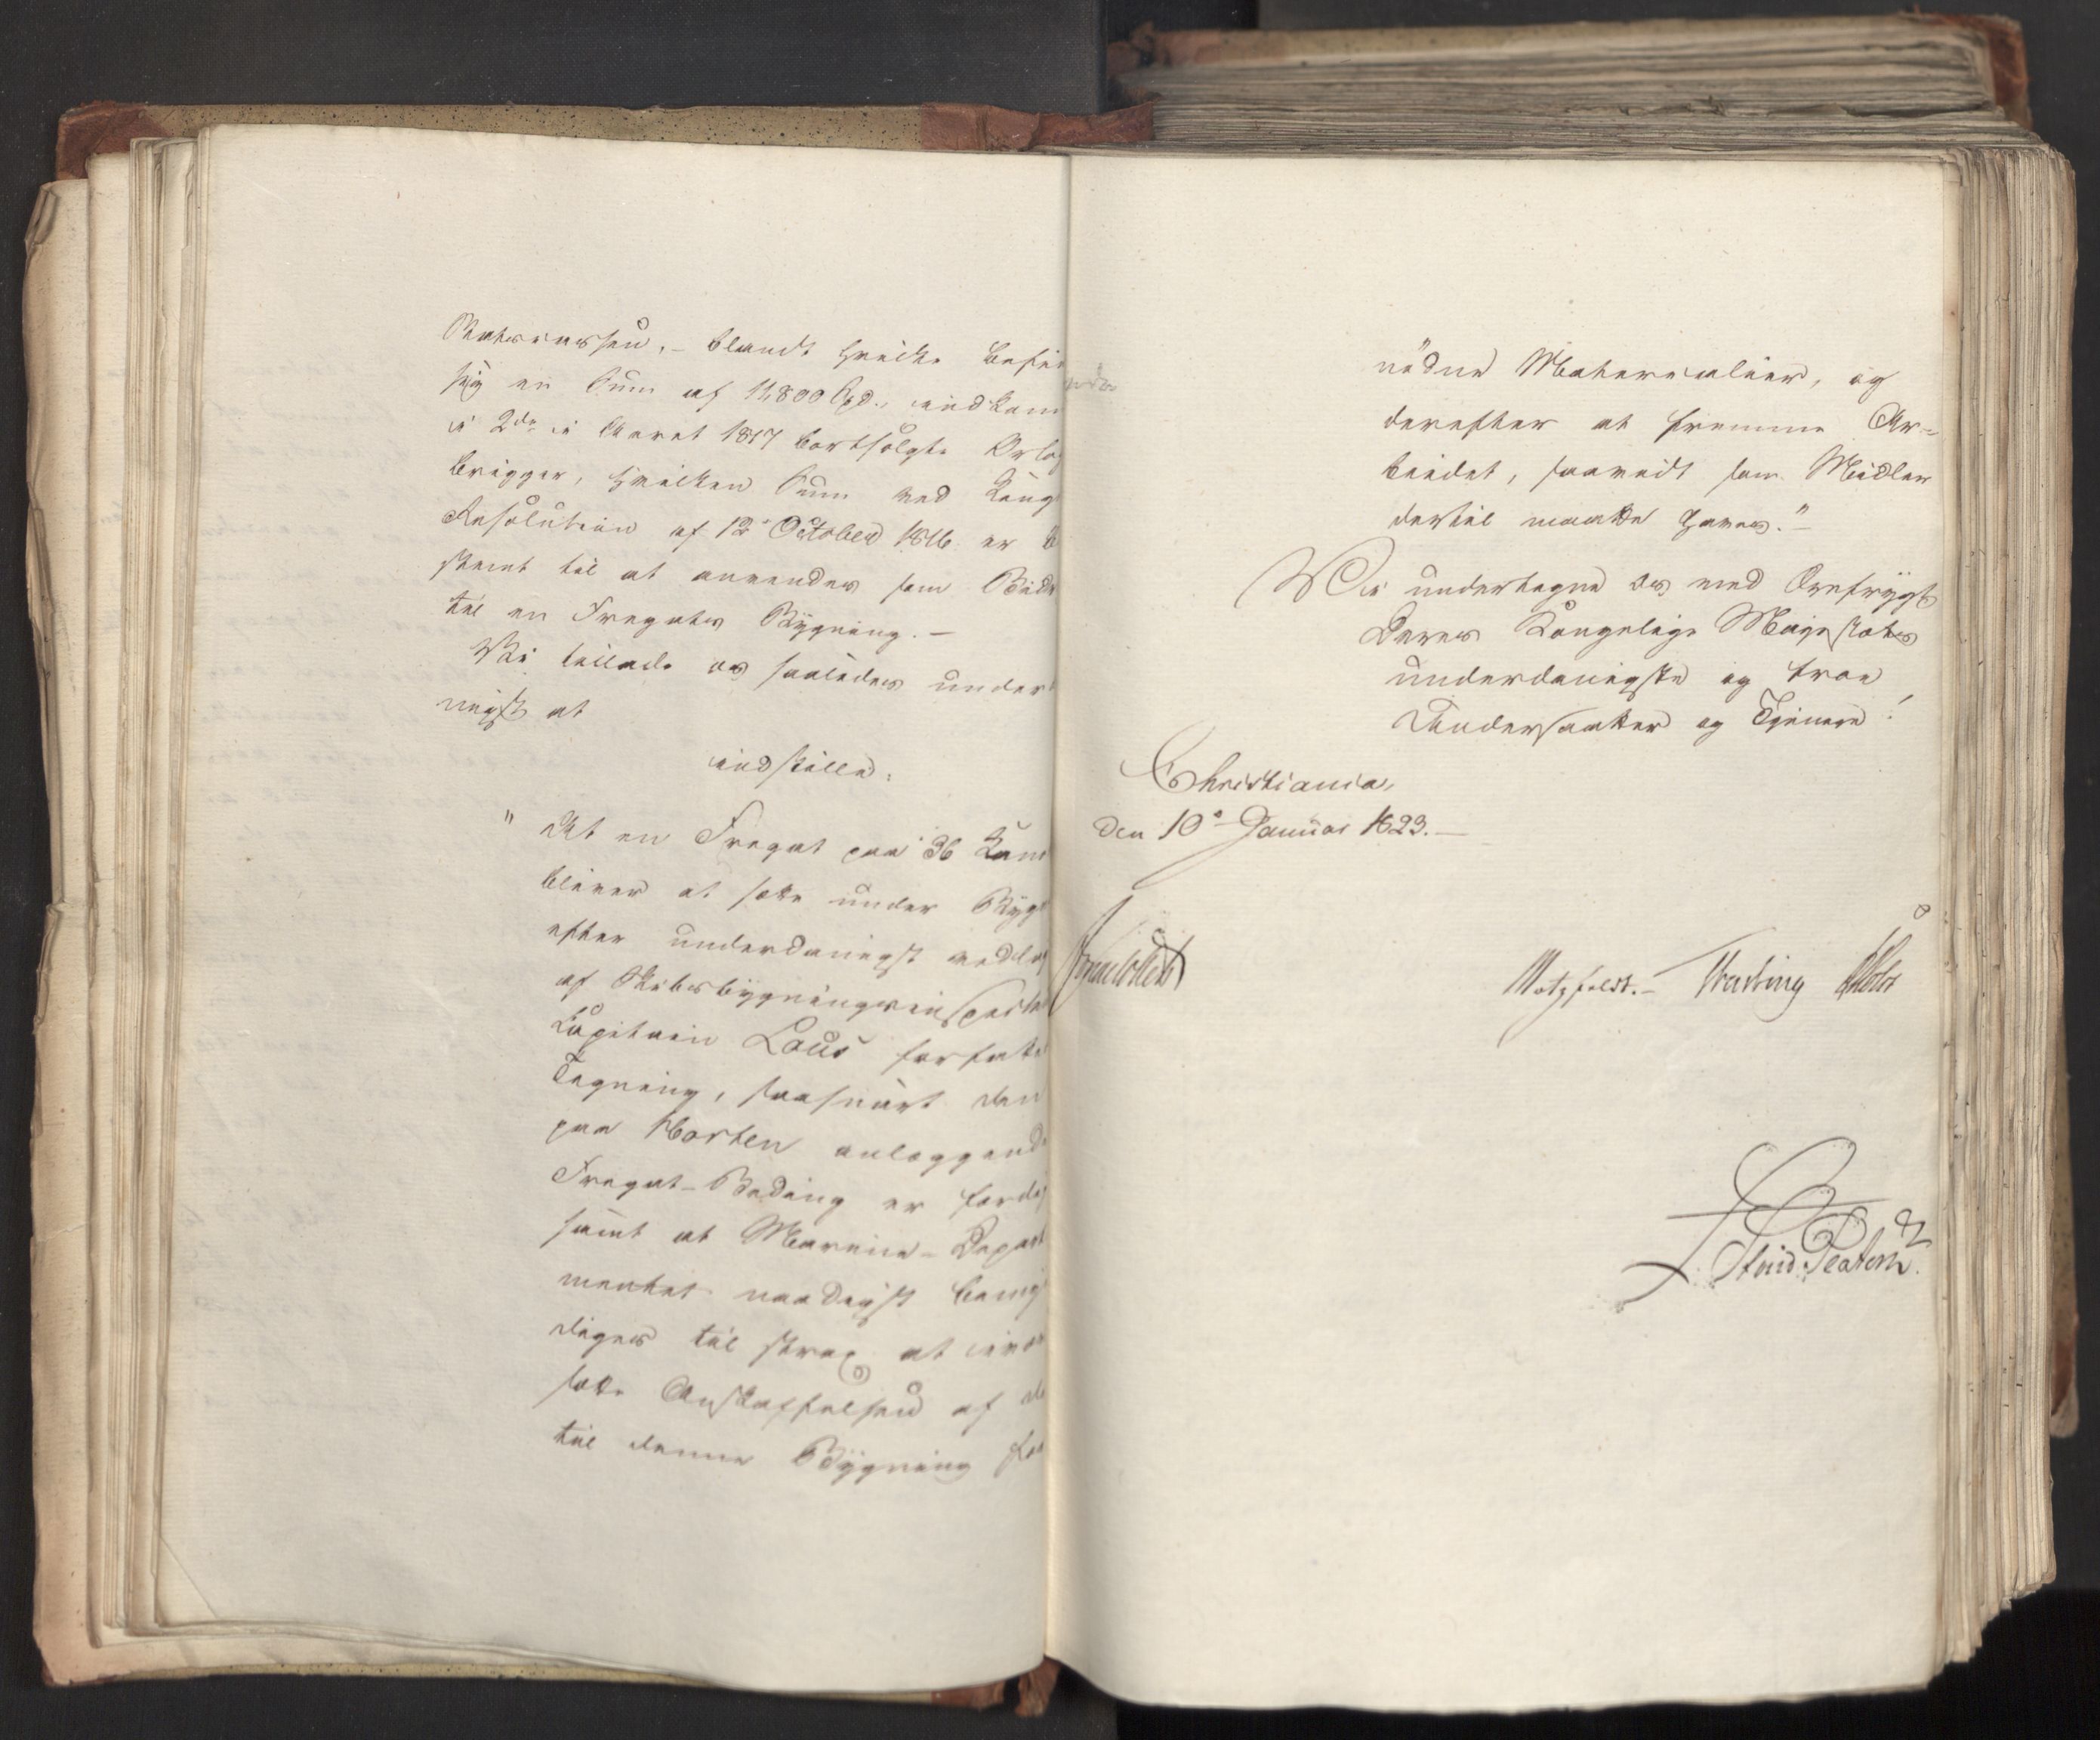 Statscassen, - blandt hvilke befin
sig en Sum af 11,800 Spd., indkom
i 2de i Aaret 1817 bortsolgte Orlog
brigger, hvilken Sum ved Kongl
Resolution af 12 October 1816 er be
stemt til at anvendes som Bidr
til en Fregats Bygning. -
Vi tillade os saaledes under
nigst at
indstille:
" At en Fregat paa 36 Kano
bliver at sætte under Bygn
efter underdanigst vedlag
af Skibsbygningsinspecteur
Capitain Lous forfatte
Tegning, saasnart den
paa Horten anlæggende
Fregat-Beding er færdig
samt at Marine-Depart
mentet naadigst bemyn
diges til strax at iværk
sætte Anskaffelsen af de
til denne Bygning for
nødne Materialier, og
derefter at fremme Ar-
beidet, saavidt som Midler
dertil maatte haves." -
Vi undertegne os med Ærefrygt
Deres Kongelige Majestæts
underdanigste og troe
Undersaatter og Tjenere!
Christiania,
den 10 Januar 1823. -
Motzfeldt. - Treschow